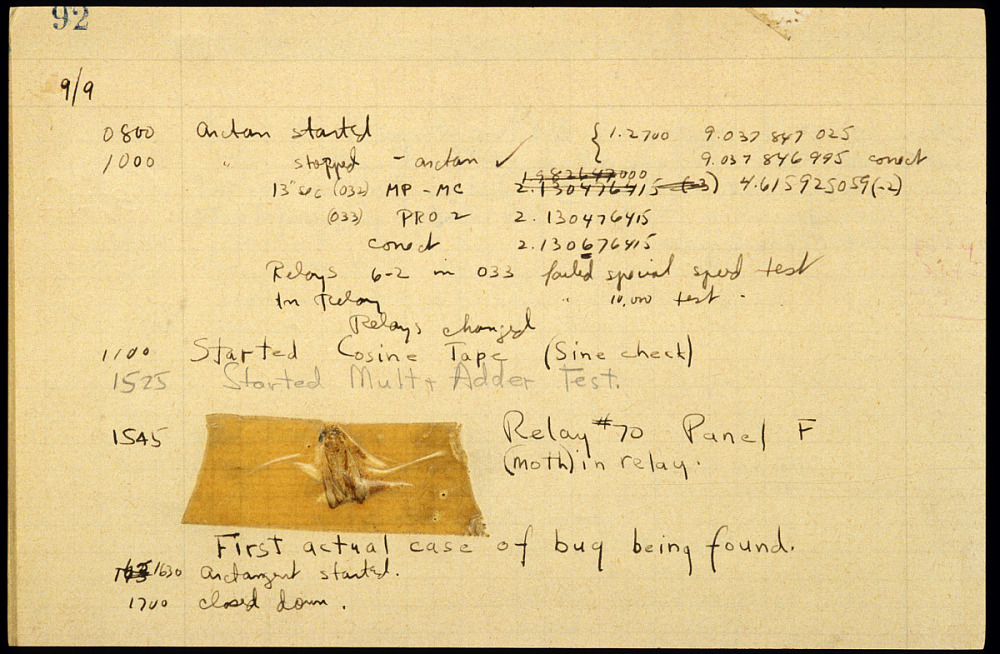 92
9/9
0800 Arctan started { 1.2700 9.037 847 025
1000 " stopped - arctan ✓ 9.037 846 995 correct
13" sec (032) MP - MC 2.130476415 (-3) 4.615925059(-2)
(033) PRO 2 2.130476415
correct 2.130676415
Relays 6-2 in 033 failed special speed test
In Relay " 10,000 test .
Relays changed
1100 Started Cosine Tape (Sine check)
1525 Started Mult + Adder Test.
1545 Relay #70 Panel F
(moth) in relay.
First actual case of bug being found.
1630 arctangent started.
1700 closed down .